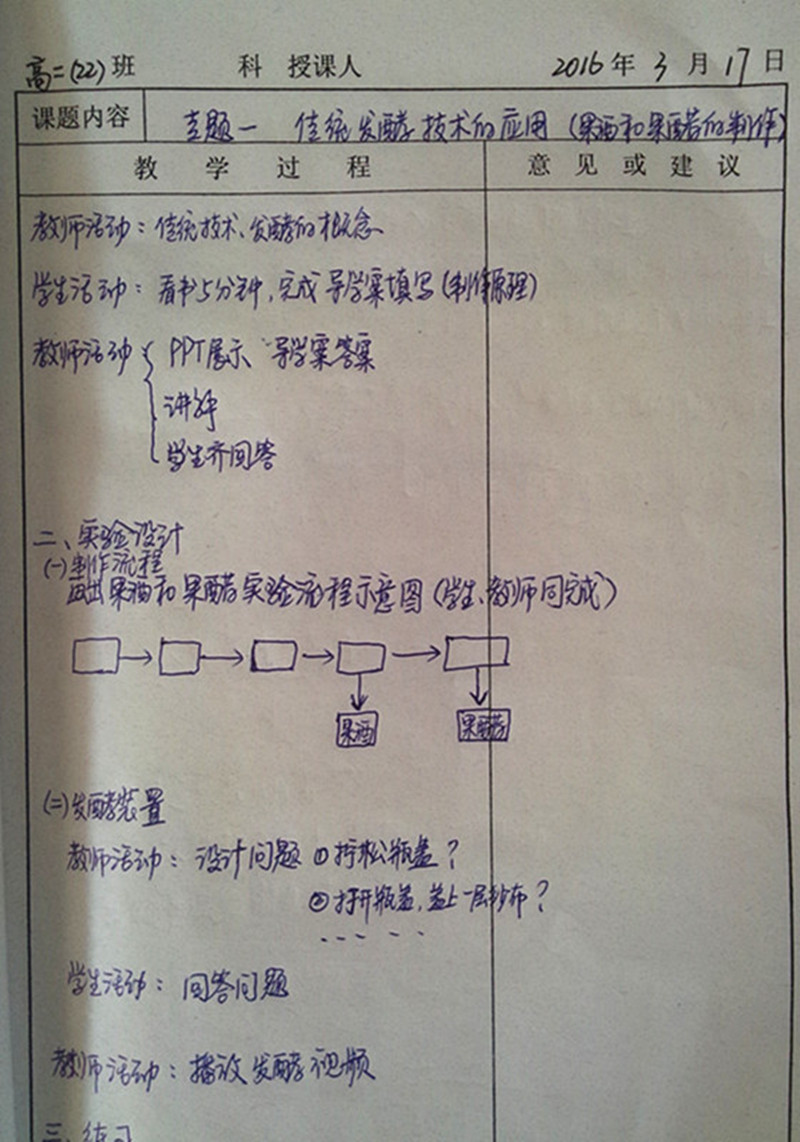 高二(22)班 科 授课人 2016年3月17日
课题内容 专题一 传统发酵技术的应用(果酒和果醋的制作)
教学过程 意见或建议
教师活动:传统技术、发酵的概念
学生活动:看书5分钟,完成导学案填写(制作原理)
教师活动 PPT展示 导学案答案
讲解
学生齐回答
二、实验设计
(一)制作流程
画出果酒和果醋实验流程示意图(学生、教师同完成)
果酒 果醋
(二)发酵装置
教师活动:设计问题 ①拧松瓶盖?
②打开瓶盖,盖上一层纱布?
.....
学生活动:回答问题
教师活动:播放发酵视频
三、练习